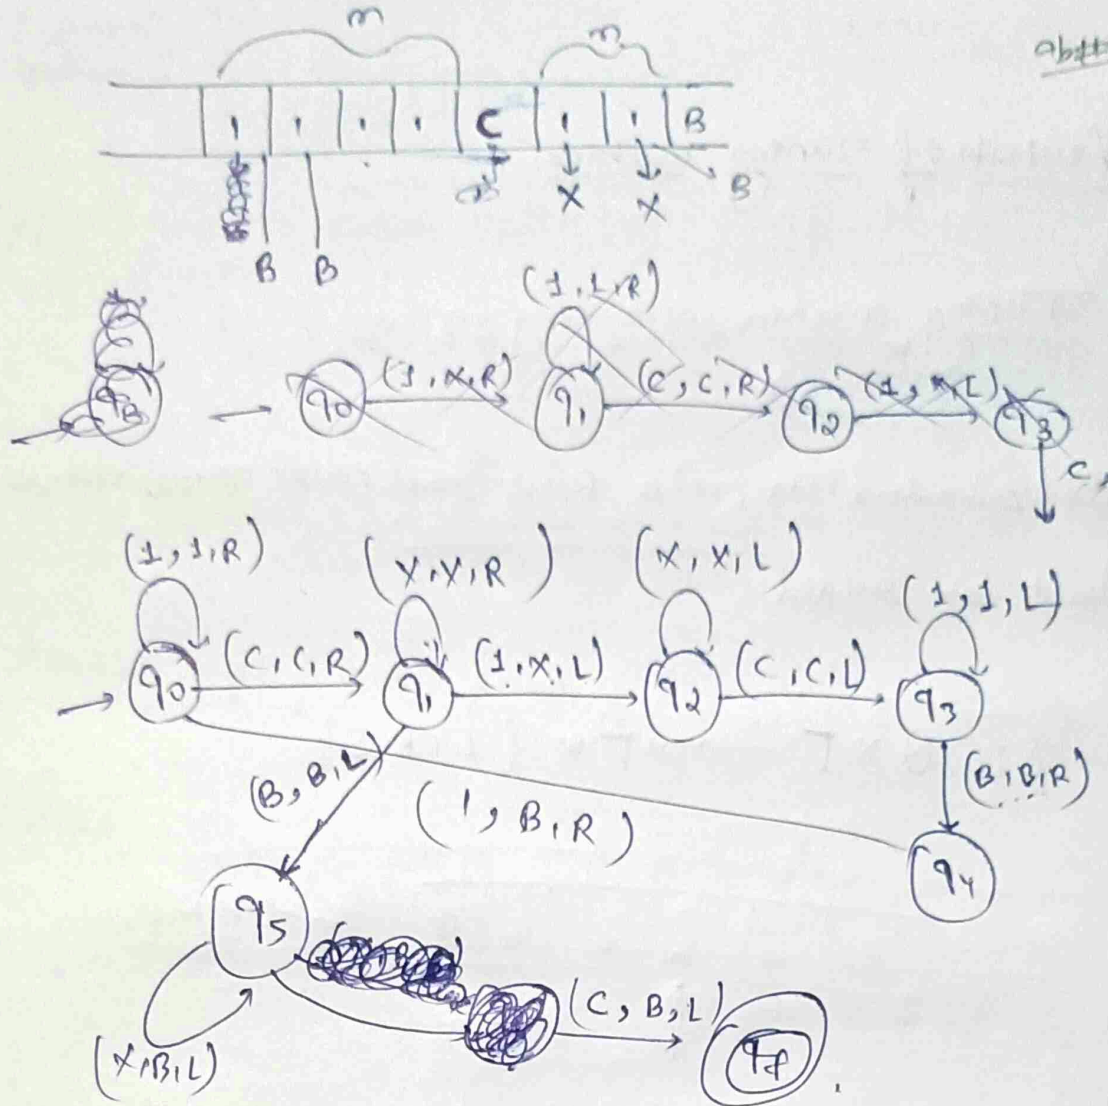 m n
1 1 1 1 C 1 1 B
X X B
B B
(1, 1, R)
q0 (1, X, R) q1 (C, C, R) q2 (1, X, L) q3
C,
(1, 1, R) (X, X, R) (X, X, L) (1, 1, L)
q0 (C, C, R) q1 (1, X, L) q2 (C, C, L) q3
(B, B, L) (1, B, R) (B, B, R)
q4
q5
(C, B, L) qf
(X, B, L)